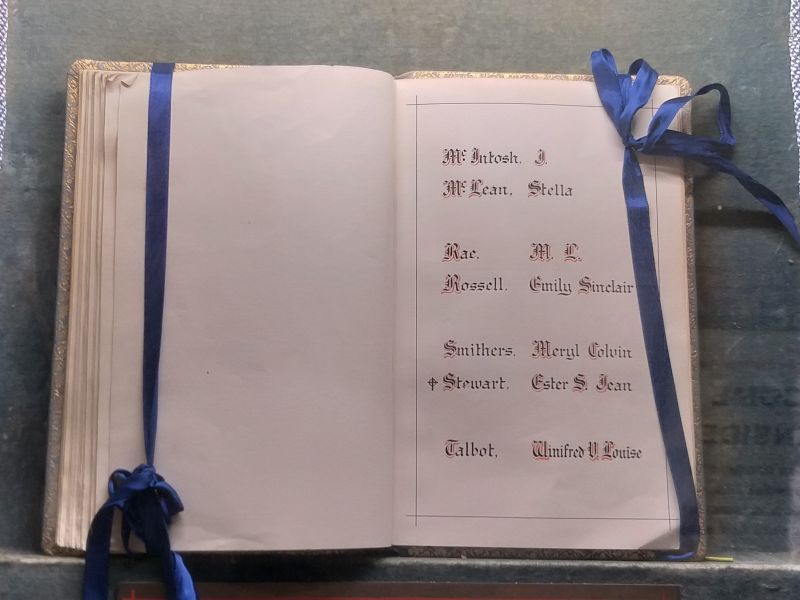 Mc Intosh, J.
Mc Lean, Stella
Rae, M. L.
Rossell, Emily Sinclair
Smithers, Meryl Colvin
✠ Stewart, Ester S. Jean
Talbot, Winifred V. Louise